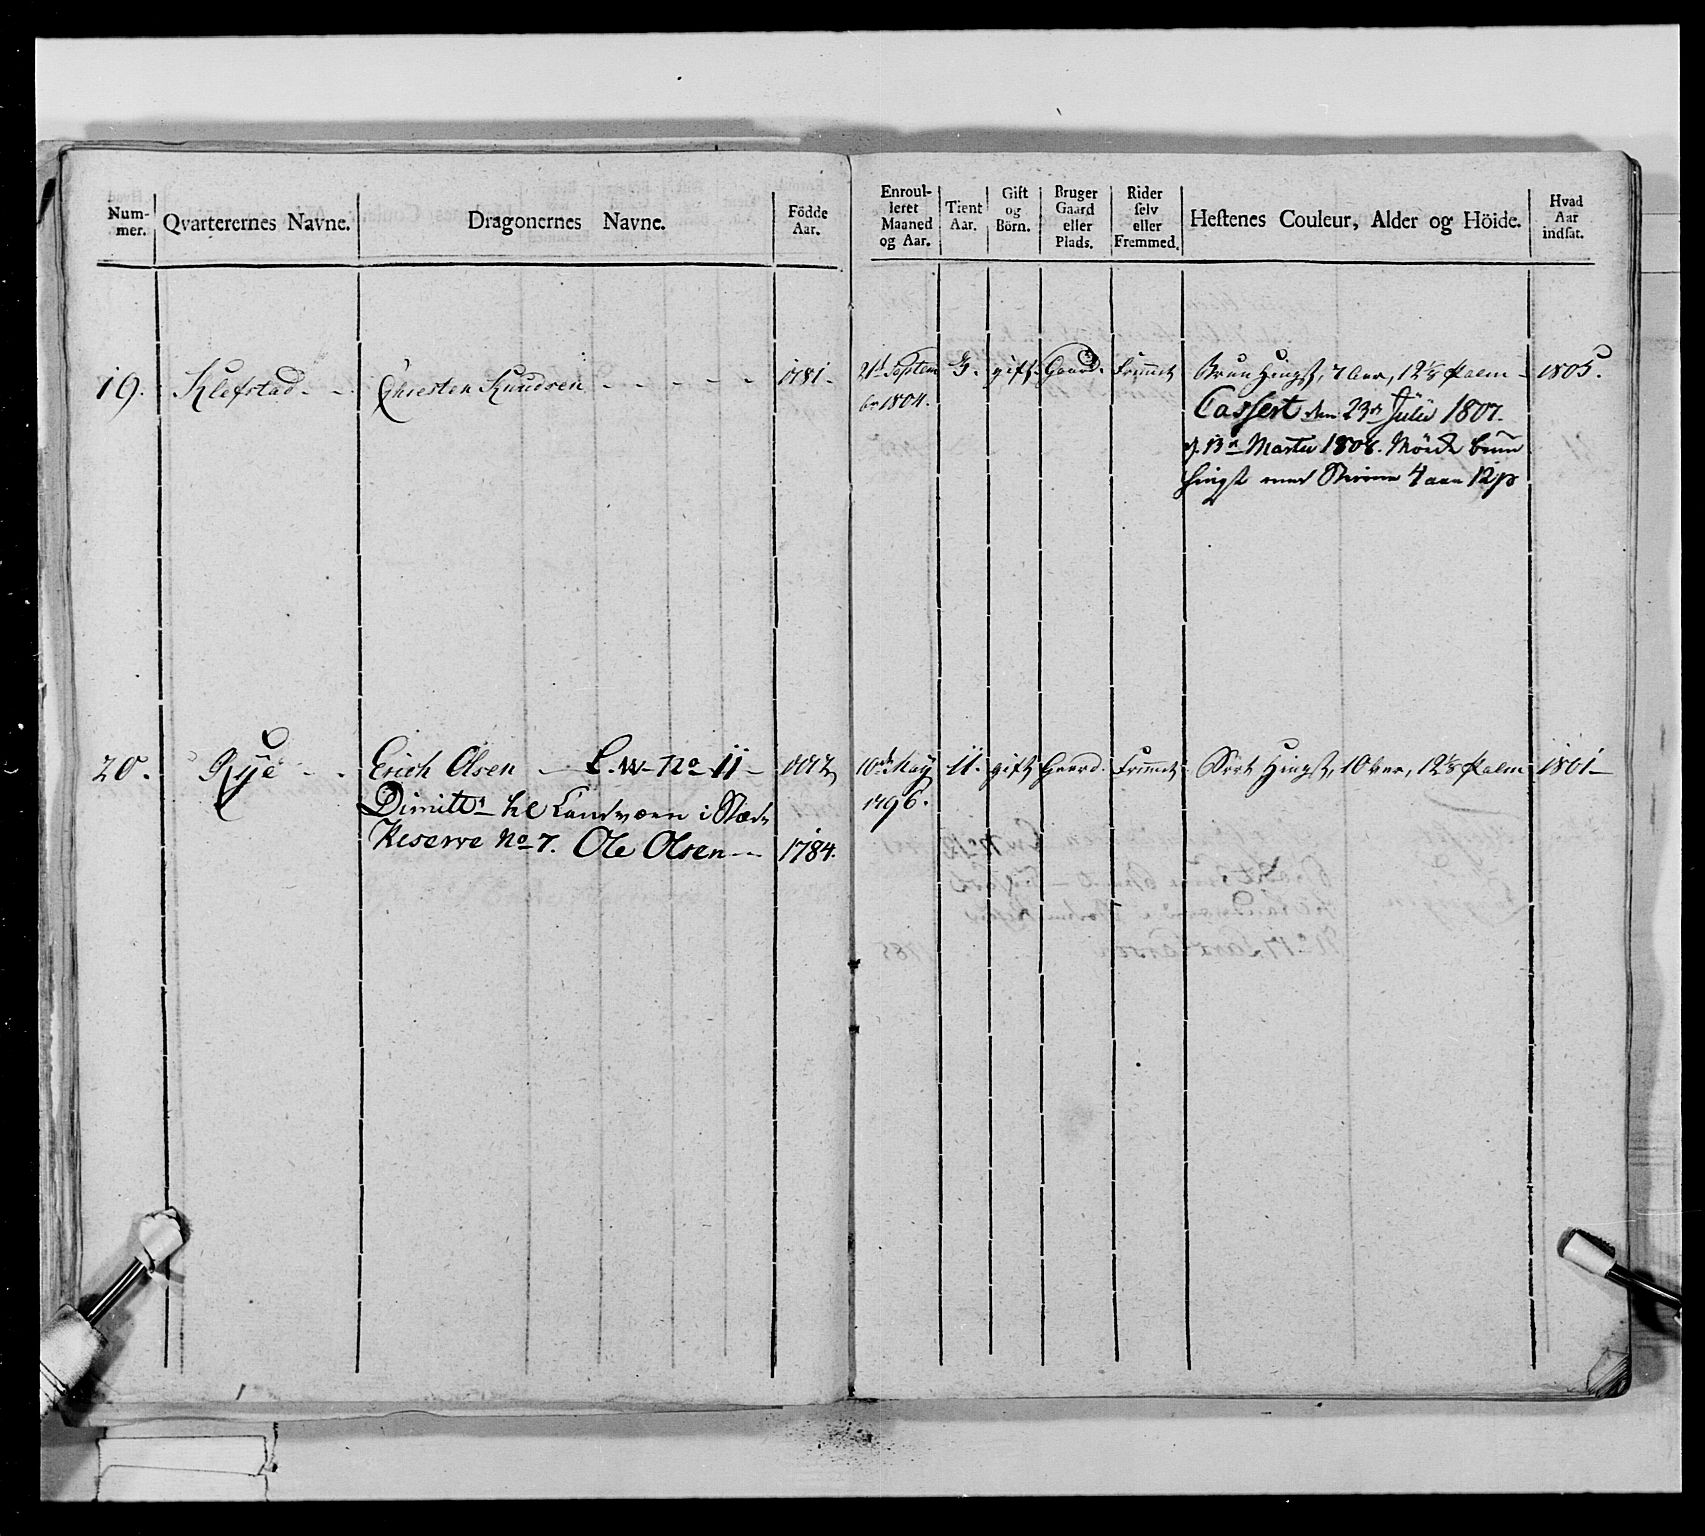 Num-
mer.
Qvarterernes Navne.
Dragonernes Navne.
Födde
Aar.
Enroul-
leret
Maaned
og Aar.
Tient
Aar.
Gift
og
Börn.
Bruger
Gaard
eller
Plads.
Rider
selv
eller
Fremmed.
Hestenes Couleur, Alder og Höide.
Hvad
Aar
indsat.
19. Klefstad - - Christen Knudsen - - - - - 1781 - 21d Septem 3. gift. Gaard. Fremmet Bruun Hingst, 7 Aar, 12 1/8 Palm - 1805.
br 1804. Cassert den 23de Julii 1807.
d. 13de Martii 1808. Mörk bruun
Hingst med Stierne 4 aar 12 p
20. Rÿe - - Erich Olsen - L. W. No 11 - 1772 10de Maÿ 11. gift Gaard. Fremmet Sort Hingst, 10 Aar, 12 1/8 Palm 1801 -
Dimitt. til Landværn i Sted 1796.
Reserve No 7. Ole Olsen - - 1784.